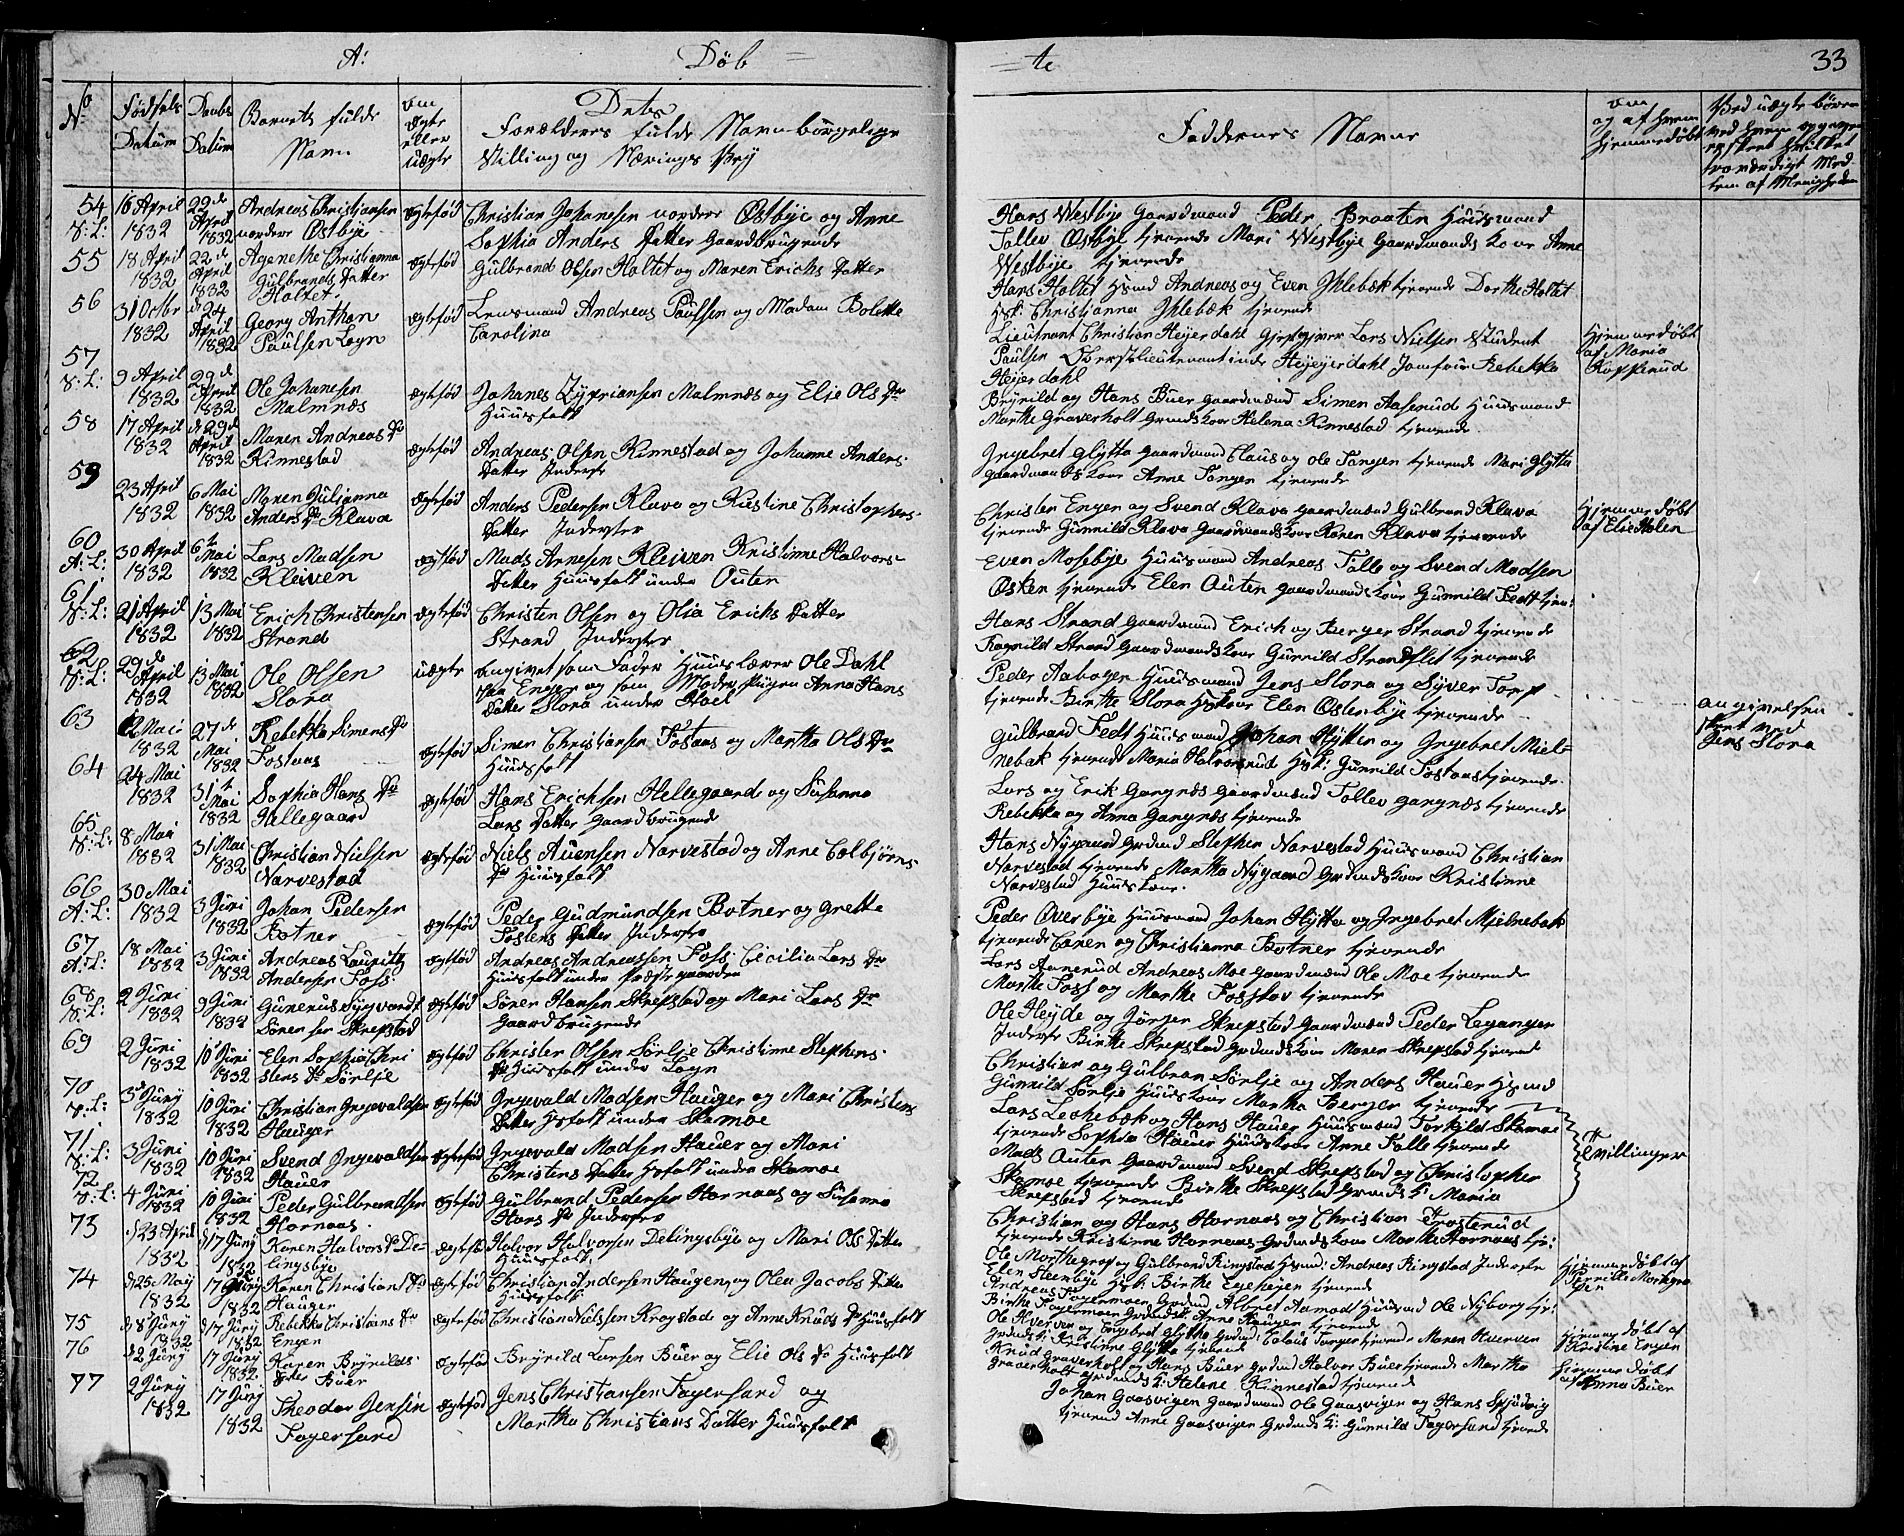 A:
Døb =
= te
33
No
Fødsels Datum
Daabs Datum
Barnets fulde Navn
om Ægte eller uægte
Dets Forældres fulde Navn borgelige
Stilling og Nærings Vey
Faddernes Navne
om og af hvem hjemmedøbt
54 16 April 1832 22de April 1832 Andreas Christjansen nordere Østbye Ægtefød Christian Johanesen nordere Østbye og Anne
Sophia Anders Datter Gaardbrugende
Hans Westbye Gaardmand Peder Braaten Huusmand
Tollev Østbye tjenende Mari Westbye Gaardmands Kone Anne
Westbye tjenende
55 18 April 1832 22de April 1832 Agenethe Christianna Gulbrands Datter Holtet Ægtefød Gulbrand Olsen Holtet og Maren Erichs Datter
Hans Holtet Hsmd Andreas og Even Ihlebæk tjenende Dorthe Holtet
Hsk: Christianna Ihlebæk tjenende
56 31 Octbr 1832 d 24 April 1832 Georg Anthon Paulsen Løgn Ægtefød Lensmand Andreas Paulsen og Madam Bolette
Carolina
Lieutnant Christian Heÿerdahl Lars Nielsen Student
Paulsen Oberstlieutenantinde Heÿejerdahl Jomfrue Rebekka
Heÿerdahl
Hjemmedøbt af Maria Kopperud
57 V: L: 9 April 1832 29de April 1832 Ole Johanesen Malmnæs Ægtefød Johanes Zÿpriansen Malmnæs og Elje Ols Dr
Huusfolk
Brÿnild og Hans Buer Gaardmænd Simen Aaserud Huusmand
Marthe Graverholt Grmdskone Helena Kinnestad tjenende
58 17 April 1832 d 29de April 1832 Maren Andreas Dr Kinnestad Ægtefød Andreas Olsen Kinnestad og Johanne Anders
Datter Inderste
Ingebret Glÿtta Gaardmand Claus og Ole Tangen tjenende Mari Glÿtta
Gaardmands Kone Anne Tangen tjenende
59 23 April 1832 6 Mai 1832 Maren Julianna Anders Dr Klava Ægtefød Anders Pedersen Klava og Kistine Christophers
Datter Inderster
Christen Engen og Svend Klava Gaardmænd Gulbrand Klava
tjenende Gunnild Klava Gaardmandskone Karen Klava tjenende
Hjemmedøbt af Elie Holen
60 A: L: 30 April 1832 6te Mai 1832 Lars Madsen Kleiven Ægtefød Mads Arnesen Kleiven Kristinne Halvors
Datter Huusfolk under Outen
Even Mosebÿe Huusmand Andreas Tolle og Svend Madsen
Østen tjenende Elen Auten Gaardmandskone Gunnild Fedt tjen:
61 V: L: 21 April 1832 13 Mai 1832 Erich Christensen Strand Ægtefød Christen Olsen og Olia Erichs Datter
Strand Inderster
Hans Strand Gaardmand Erich og Børger Strand tjenende
Ragnild Strand Gaardmandskone Gunnild Strandslet tjenende
62 V: L: 29de April 1832 13 Mai 1832 Ole Olsen Slora uægte Angivet som Fader Huuslærer Ole Dahl
paa Engen og som Moder Pigen Anna Hans
Datter Slora under Hoel
Peder Aabogen Huusmand Jens Slora og Sÿver Torp
tjenende Birthe Slora Hskone Elen Østenbÿe tjenende
angivelsen skeet ved Jens Slora
63 12 Mai 1832 27de Mai 1832 Rebekka Simens Dr Fosaas Ægtefød Simen Christiansen Fosaas og Martha Ols Dr
Huusfolk
Gulbrand Fedt Huusmand Johan Hÿtten og Ingebret Miel=
nebæk tjenende Maria Halvorsrud Hsk: Gunnild Fosaas tjenende
64 24 Mai 1832 31te Mai 1832 Sophia Hans Dr Hellegaard Ægtefød Hans Erichsen Hellegaarde og Susanna
Lars Datter Gaardbrugende
Lars og Erik Gangnæs Gaardmænd Tollev Gangnæs tjenende
Rebekka og Anna Gangnæs tjenende
65 V: L: 8 Mai 1832 31 Mai 1832 Christian Nielsen Narvestad Ægtefød Niels Auensen Narvestad og Anne Colbjørns
Dr Huusfolk
Hans Nÿgaard Grdmd Stephen Narvestad Huusmand Christian
Narvestad tjenende Martha Nÿgaard Grdmdskone Kristinne
Narvestad Huuskone.
66 A: L: 30 Mai 1832 3 Juni 1832 Johan Pedersen Botner Ægtefød Peder Gudmundsen Botner og Grette
Tostens Datter Inderste
Peder Overbÿe Huusmand Johan Hÿtta og Ingebret Mielnebæk
tjenende Caren og Christianna Botner tjenende
67 A: L: 18 Mai 1832 3 Juni 1832 Andreas Lauritz Andersen Foss. Ægtefød Andreas Andreassen Foss. Cicilia Lars Dr
Huusfolk under Præstgaarden
Lars Aanerud Andreas Moe Gaardmænd Ole Moe tjenende
Marthe Foss og Marthe Fosskov tjenende
68 V: L: 2 Juni 1832 9 Juni 1832 Gunerius Sÿgvardt Sørensen Skrepstad Ægtefød Søren Hansen Skrepstad og Mari Lars Dr
Gaardbrugende
Ole Heÿde og Jørgen Skrepstad Gaardmænd Peder Leganger
Inderste Birthe Skrepstad Grdmdskone Maren Skrepstad tjenend
69 2 Juni 1832 10 Juni 1832 Elen Sophia Christens Dr Sørlje Ægtefød Christen Olsen Sørlje Christinne Stephens
Dr Huusfolk under Løgn
Christian og Gulbran Sørlje og Anders Hauer Hsmd
Gunnild Sørlje Huuskone Martha Berger tjenende
70 V: L: 3 Junÿ 1832 10 Juni 1832 Christian Ingevaldsen Hauger Ægtefød Ingevald Madsen Hauger og Mari Christens
Datter Hsfolk under Skamoe
Lars Lechebæk og Hans Hauer Huusmænd Torkild Skamoe
tjenende Sophia Hauer Huuskone Anne Tolle tjenende
Tvillinger
71 V: L: 3 Juni 1832 10 Juni 1832 Svend Ingevaldsen Hauer Ægtefød Ingevald Madsen Hauer og Mari
Christens Datter Hsfolk under Skamoe
Mads Auten Gaardmand Svend Skrepstad og Christopher
Skamoe tjenende Birthe Skrepstad Grdmds K: Maria
Skrepstad tjenende
72 V: L: 4 Juni 1832 10 Juni 1832 Peder Gulbrandsen Hornaas. Ægtefød Gulbrand Pedersen Hornaas og Susanna
Hans Dr Inderste
Christian og Hans Hornaas og Christian Trosterud
tjenende Kristinne Hornaas Grdmdskone Marthe Hornaas tje:
73 d 23 April 1832 d 17 Junÿ 1832 Karen Halvors Dr Delingsbÿe Ægtefød Halvor Halvorsen Delingsbÿe og Mari Ols Datter
Huusfolk.
Ole Marthegrav og Gulbrand Ringstad Hsmd: Andreas Ringstad Inderste
Elen Steenbÿe Hsk: Birthe tjenende
Hjemmedøbt af
74 d 25 Maÿ 1832 17 Junÿ 1832 Karen Christians Dr Hauger Ægtefød Christian Andersen Haugen, og Olea Jacobs Datter
Huusfolk
Andreas Fagermoen Grdmd Albret Aamodt Huusmd Ole Nÿborg tje:
Birthe Fagermoen Grdmdsk: Anne Haugen tjenende
75 d 8 Junÿ 1832 d 17 Junÿ 1832 Rebekka Christians Dr Engen Ægtefød Christian Nielsen Krogstad og Anne Knuds Dr Huusfolk
Ole Kverven og Engebret Glÿtha Grdmd: Colaus Tangen tjenende Maren Kverven
Grdmds K: Kristinne Glÿtta tjenende
Hjemmedøbt af Kirstine Engen
76 d 2 Junÿ 1832 17 Junÿ 1832 Karen Brÿnilds Dter Buer Ægtefød Brÿnild Larsen Buer og Elie Ols Dr Huusfolk
Knud Graverholt og Hans Buer Grdmd Halvor Buer tjenende Martha
Graverholt Grdmds K: Helene Kinnestad tjenende
Hjemmedøbt af Anna Buer
77 2 Junÿ 1832 17 Junÿ 1832 Theodor Jensen Fagersand Ægtefød Jens Christiansen Fagersand og
Martha Christians Datter Huusfolk
Johan Gaasvigen Gaardmand Ole Gaasvigen og Hans Spydevig
tjenend Anne Gaasvigen Grdmds K: Gunnild Fagersand tjenende